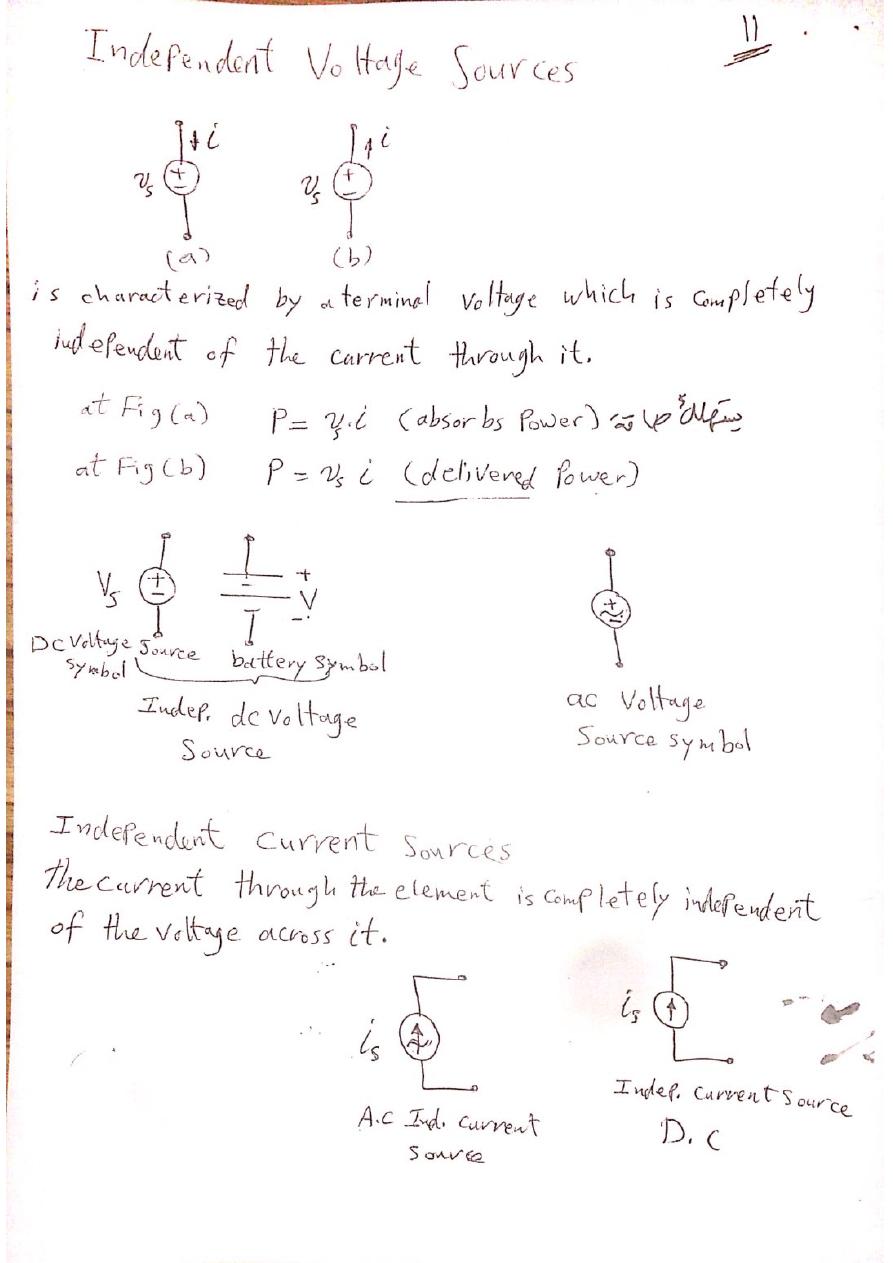 11
Independent Voltage Sources
i i
vs + - vs + -
(a) (b)
is characterized by a terminal voltage which is completely
independent of the current through it.
at Fig (a) P = vs.i (absorbs Power) يستهلك طاقة
at Fig (b) P = vs i (delivered Power)
Vs + - + V - +
DC Voltage Source battery symbol
symbol
Indep. dc voltage
Source
ac Voltage
Source symbol
Independent current Sources
The current through the element is completely independent
of the voltage across it.
is is
A.C Ind. current
Source
Indep. Current Source
D.C